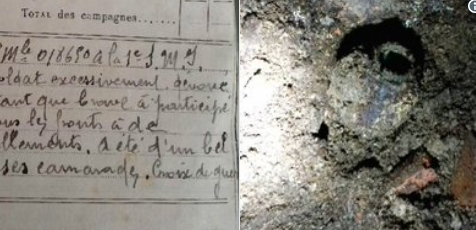 TOTAL des campagnes.......
Mle 018650 à la 1e S.M.I.
soldat excessivement dévoué
tant que brave à participé
ous les fronts à de
ellements. a été d'un bel
ses camarades. Croix de guer